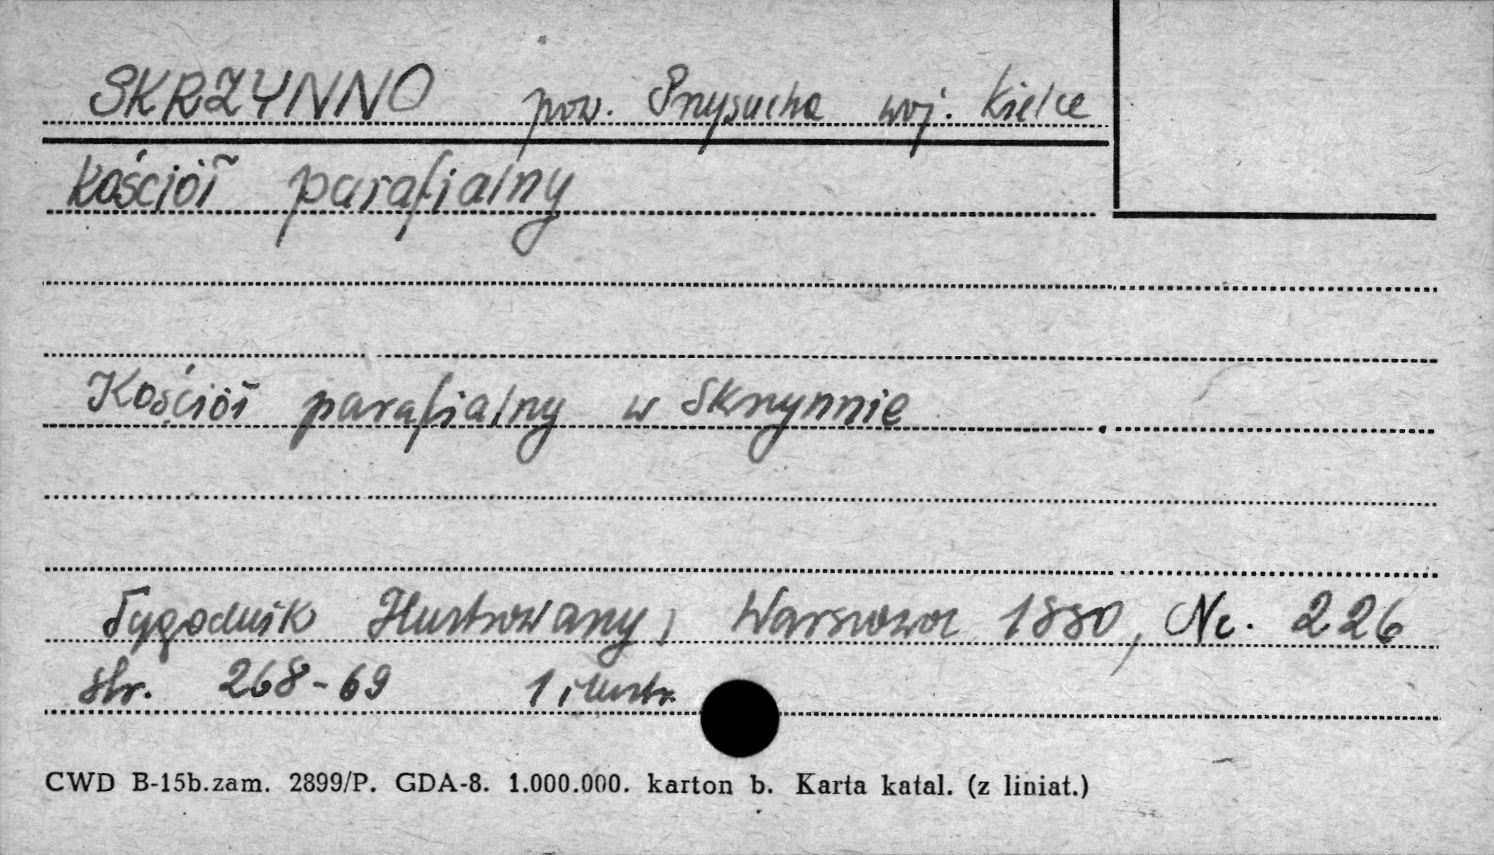 SKRZYNNO pow. Przysucha woj. Kielce
Kościół parafialny
Kościół parafialny w Skrzynnie
Tygodnik Ilustrowany, Warszawa 1880, Nr. 226
str. 268-69 1 ilustr.
CWD B-15b.zam. 2899/P. GDA-8. 1.000.000. karton b. Karta katal. (z liniat.)